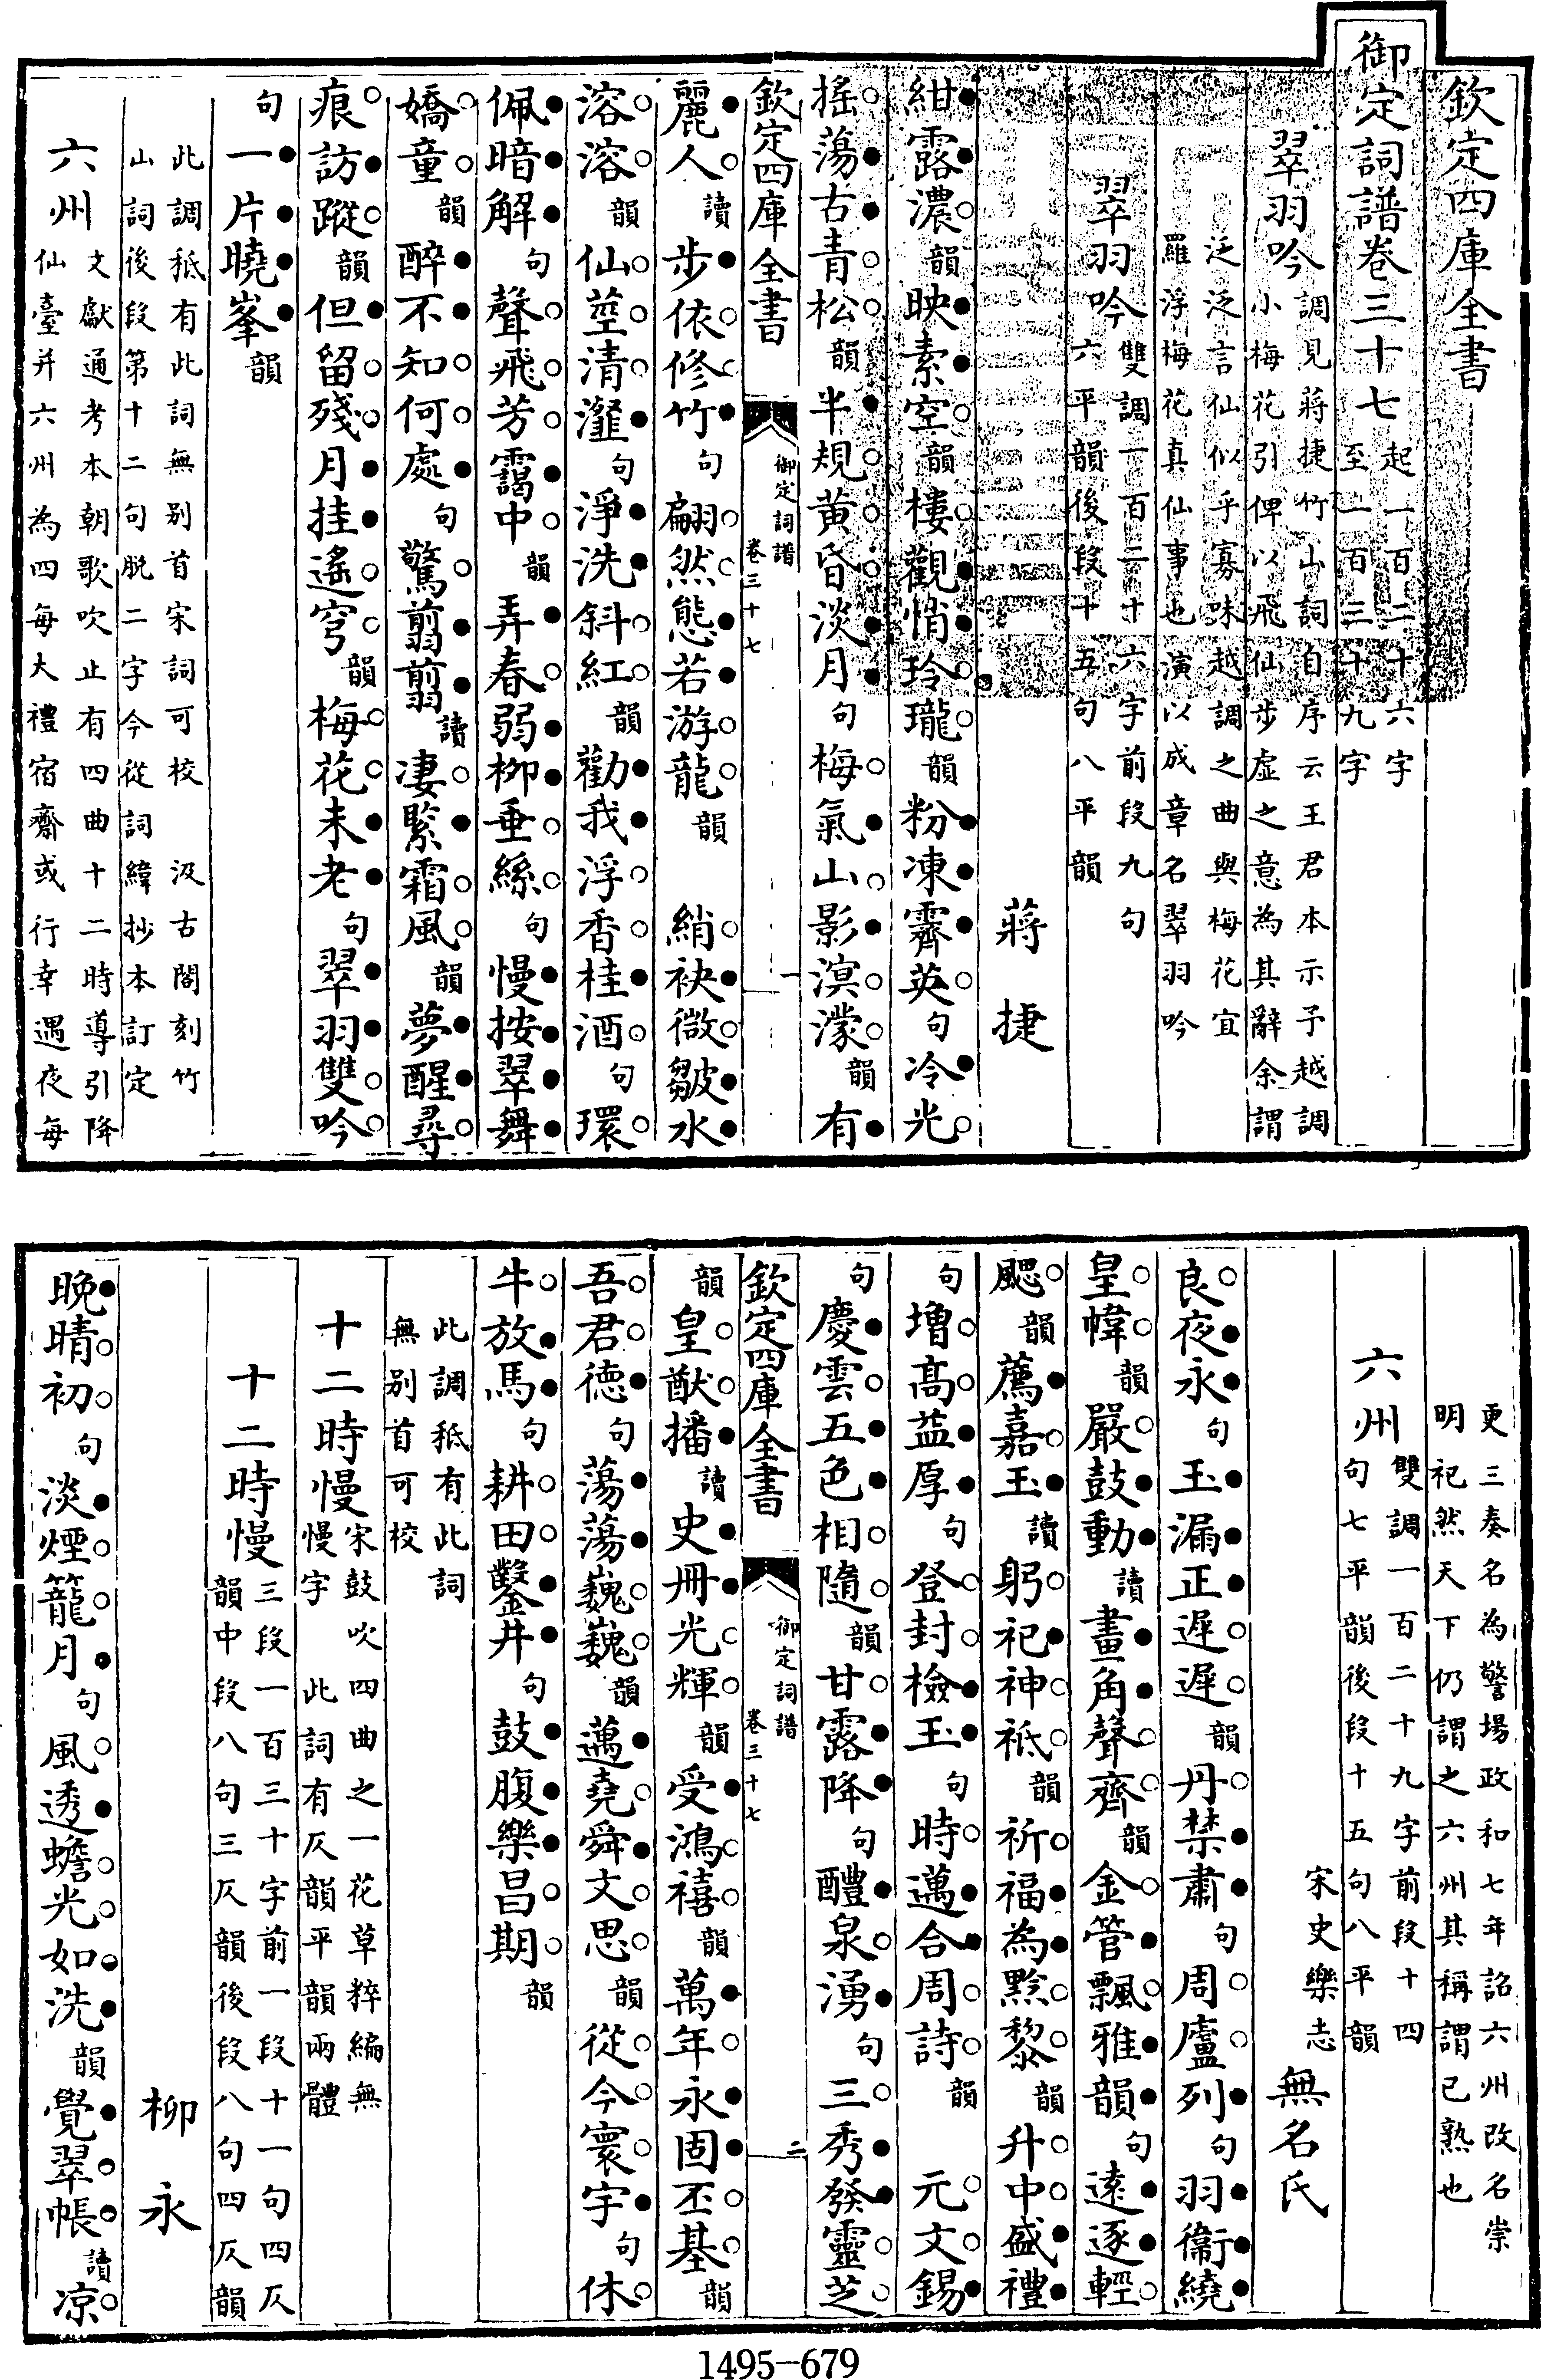 欽定四庫全書
御定詞譜卷三十七起一百二十六字至一百三十九字
翠羽吟調見蔣捷竹山詞自序云王君本示予越調小梅花引俾以飛仙步虛之意為其辭余謂
泛泛言仙似乎寡味越調之曲與梅花宜羅浮梅花真仙事也演以成章名翠羽吟
翠羽吟雙調一百二十六字前段九句六平韻後段十五句八平韻
蔣捷
紺露濃韻映素空韻樓觀悄玲瓏韻粉凍霽英句冷光
搖蕩古青松韻半規黃昏淡月句梅氣山影溟濛韻有
欽定四庫全書 御定詞譜 卷三十七 一
麗人讀步依修竹句翩然態若游龍韻 綃袂微皺水
溶溶韻仙莖清瀣句淨洗斜紅韻勸我浮香桂酒句環
佩暗解句聲飛芳靄中韻弄春弱柳垂絲句慢按翠舞
嬌童韻醉不知何處句驚翦翦讀淒緊霜風韻夢醒尋
痕訪蹤韻但留殘月挂遙穹韻梅花未老句翠羽雙吟
句一片曉峯韻
此調秪有此詞無別首宋詞可校 汲古閣刻竹
山詞後段第十二句脫二字今從詞緯抄本訂定
六州文獻通考本朝歌吹止有四曲十二時導引降仙臺并六州為四每大禮宿齋或行幸遇夜每
更三奏名為警場政和七年詔六州改名崇
明祀然天下仍謂之六州其稱謂已熟也
六州雙調一百二十九字前段十四句七平韻後段十五句八平韻
宋史樂志 無名氏
良夜永句玉漏正遲遲韻丹禁肅句周廬列句羽衞繞
皇幃韻嚴鼓動讀畫角聲齊韻金管飄雅韻句遠逐輕
颸韻薦嘉玉讀躬祀神祗韻祈福為黔黎韻升中盛禮
句增高益厚句登封檢玉句時邁合周詩韻 元文錫
句慶雲五色相隨韻甘露降句醴泉湧句三秀發靈芝
欽定四庫全書 御定詞譜 卷三十七 二
韻皇猷播讀史冊光輝韻受鴻禧韻萬年永固丕基韻
吾君德句蕩蕩巍巍韻邁堯舜文思韻從今寰宇句休
牛放馬句耕田鑿井句鼓腹樂昌期韻
此調秪有此詞
無別首可校
十二時慢宋鼓吹四曲之一花草粹編無慢字 此詞有仄韻平韻兩體
十二時慢三段一百三十字前一段十一句四仄韻中段八句三仄韻後段八句四仄韻
柳永
晚晴初句淡煙籠月句風透蟾光如洗韻覺翠帳讀涼
1495-679